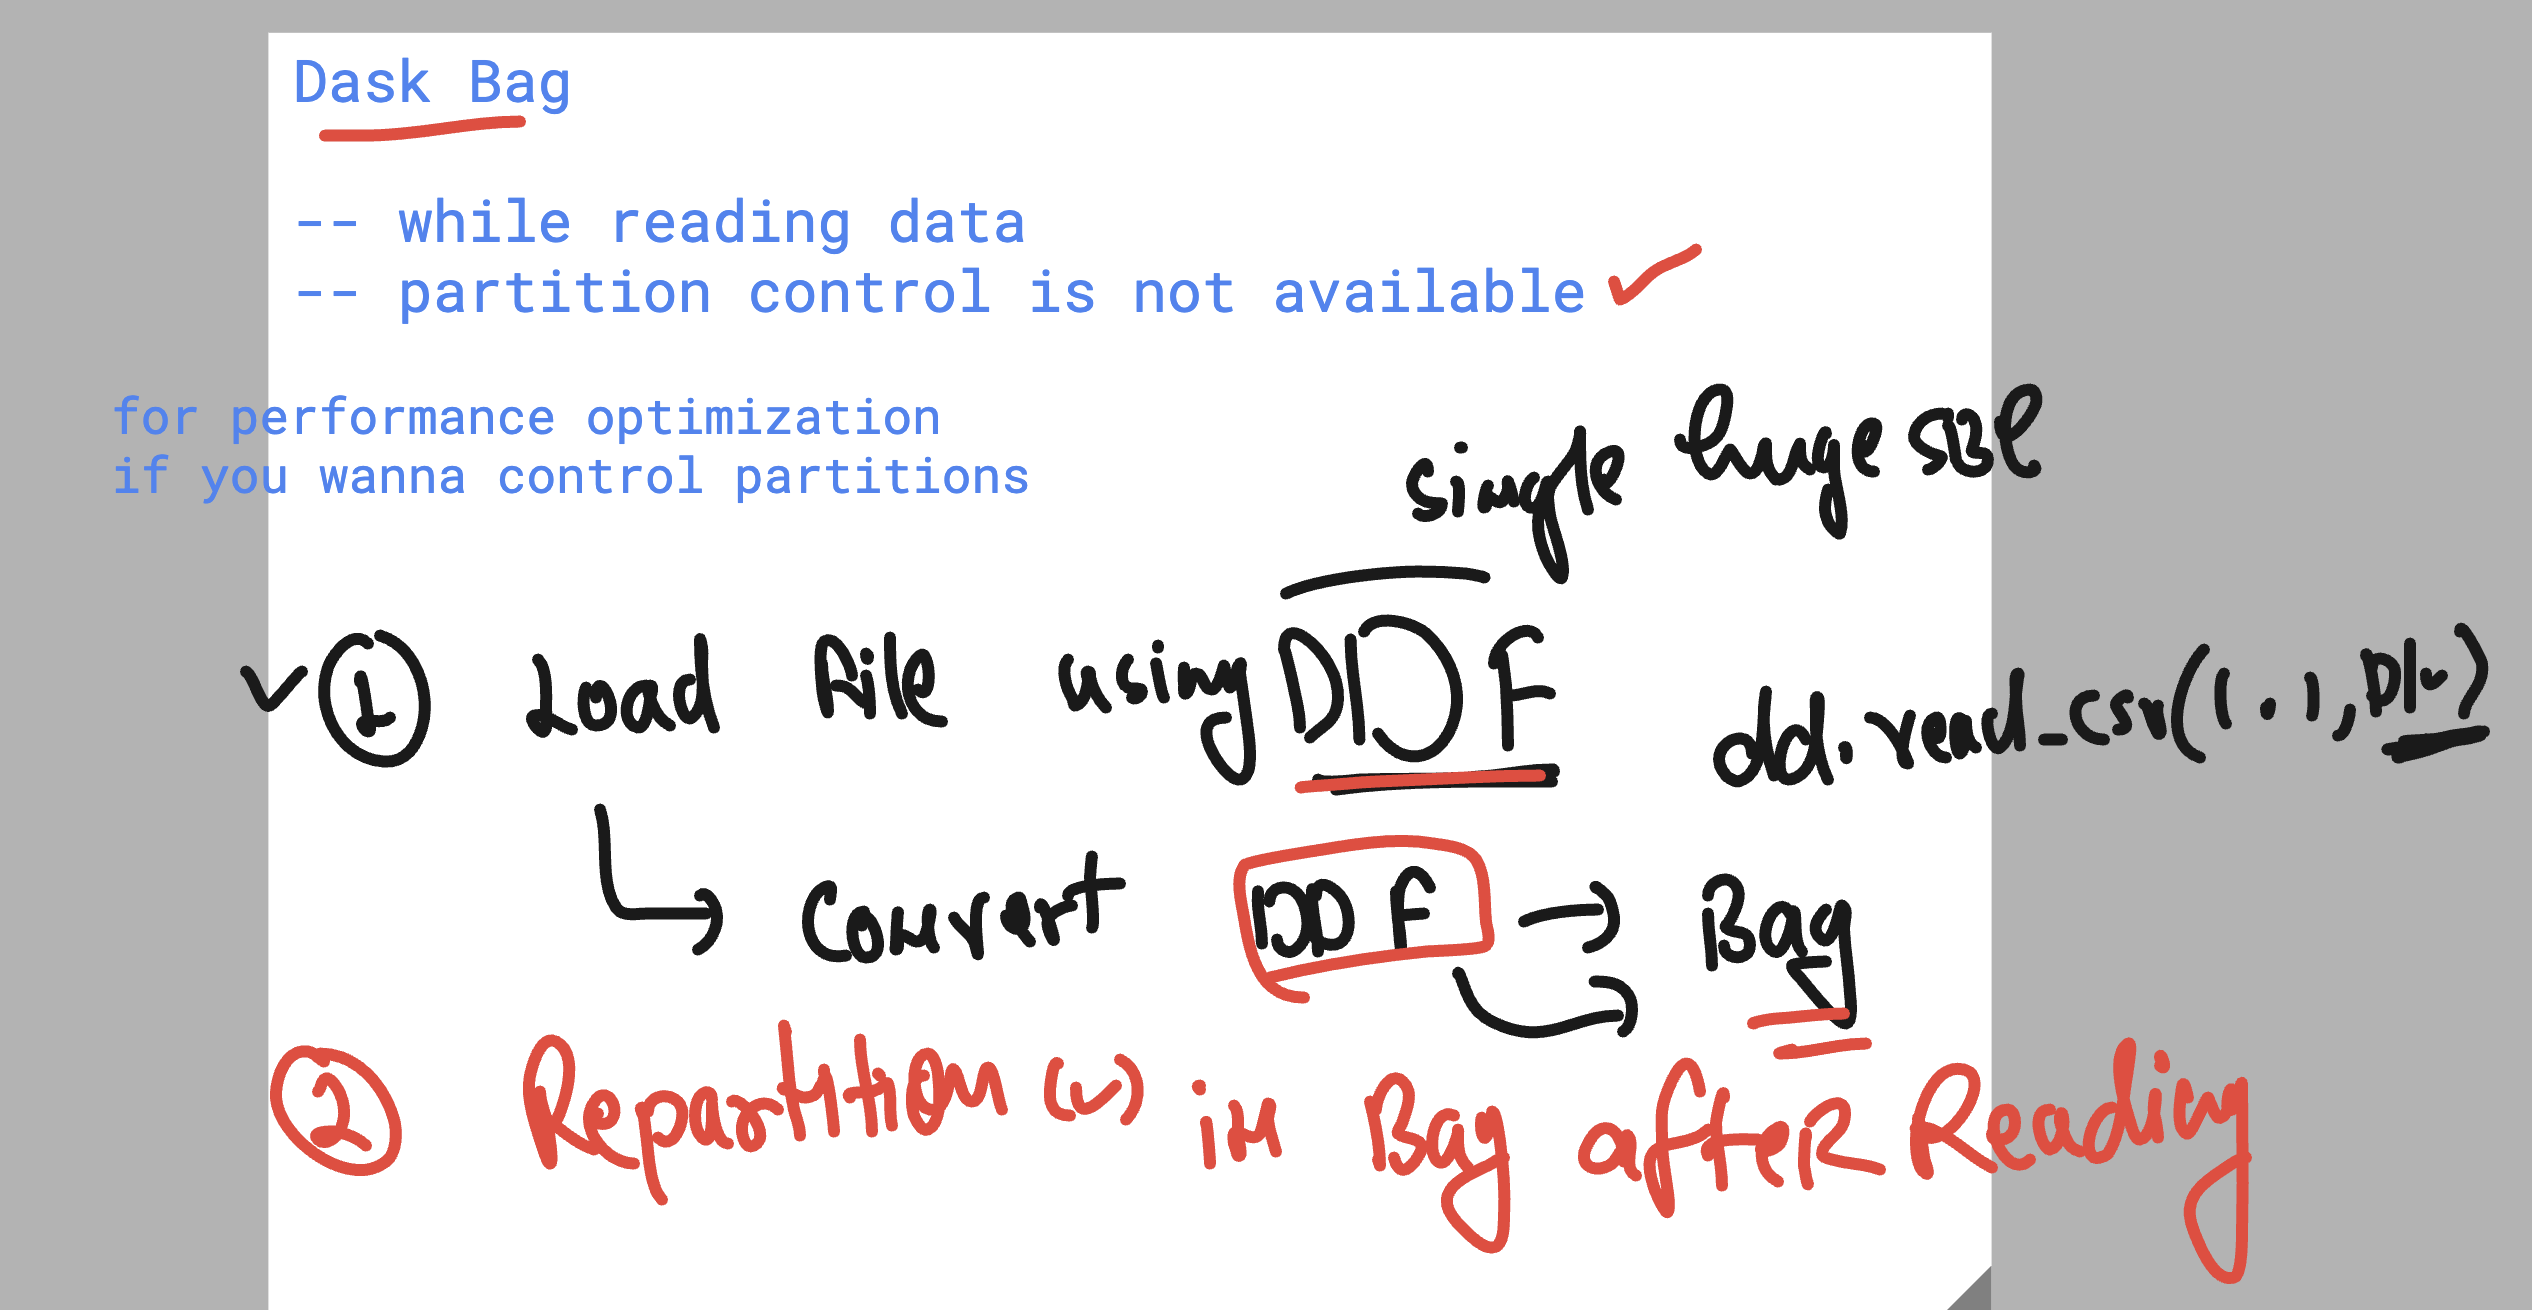 Dask Bag
-- while reading data
-- partition control is not available
for performance optimization
if you wanna control partitions
single huge size
1 Load file using DDF dd.read_csv(
Convert DDF → Bag
2 Repartition( ) in Bag after Reading